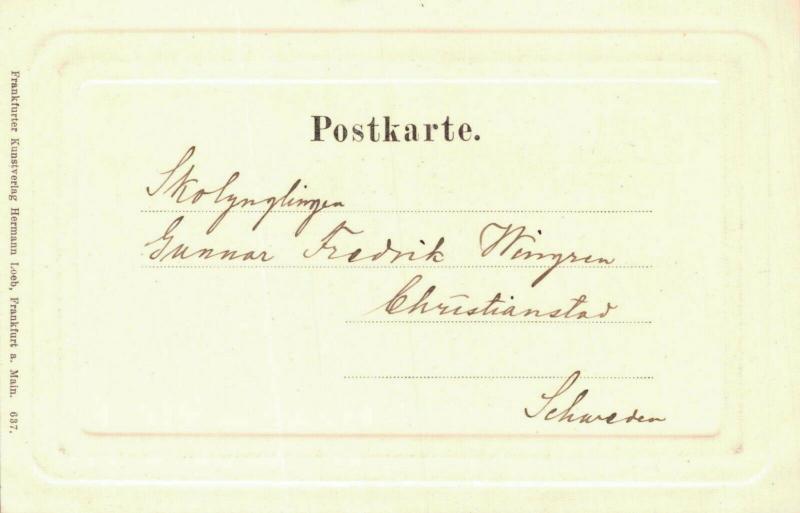 Postkarte.
Skolynglingen
Gunnar Fredrik Wingren
Christianstad
Schweden
Frankfurter Kunstverlag Hermann Loeb, Frankfurt a. Main. 637.